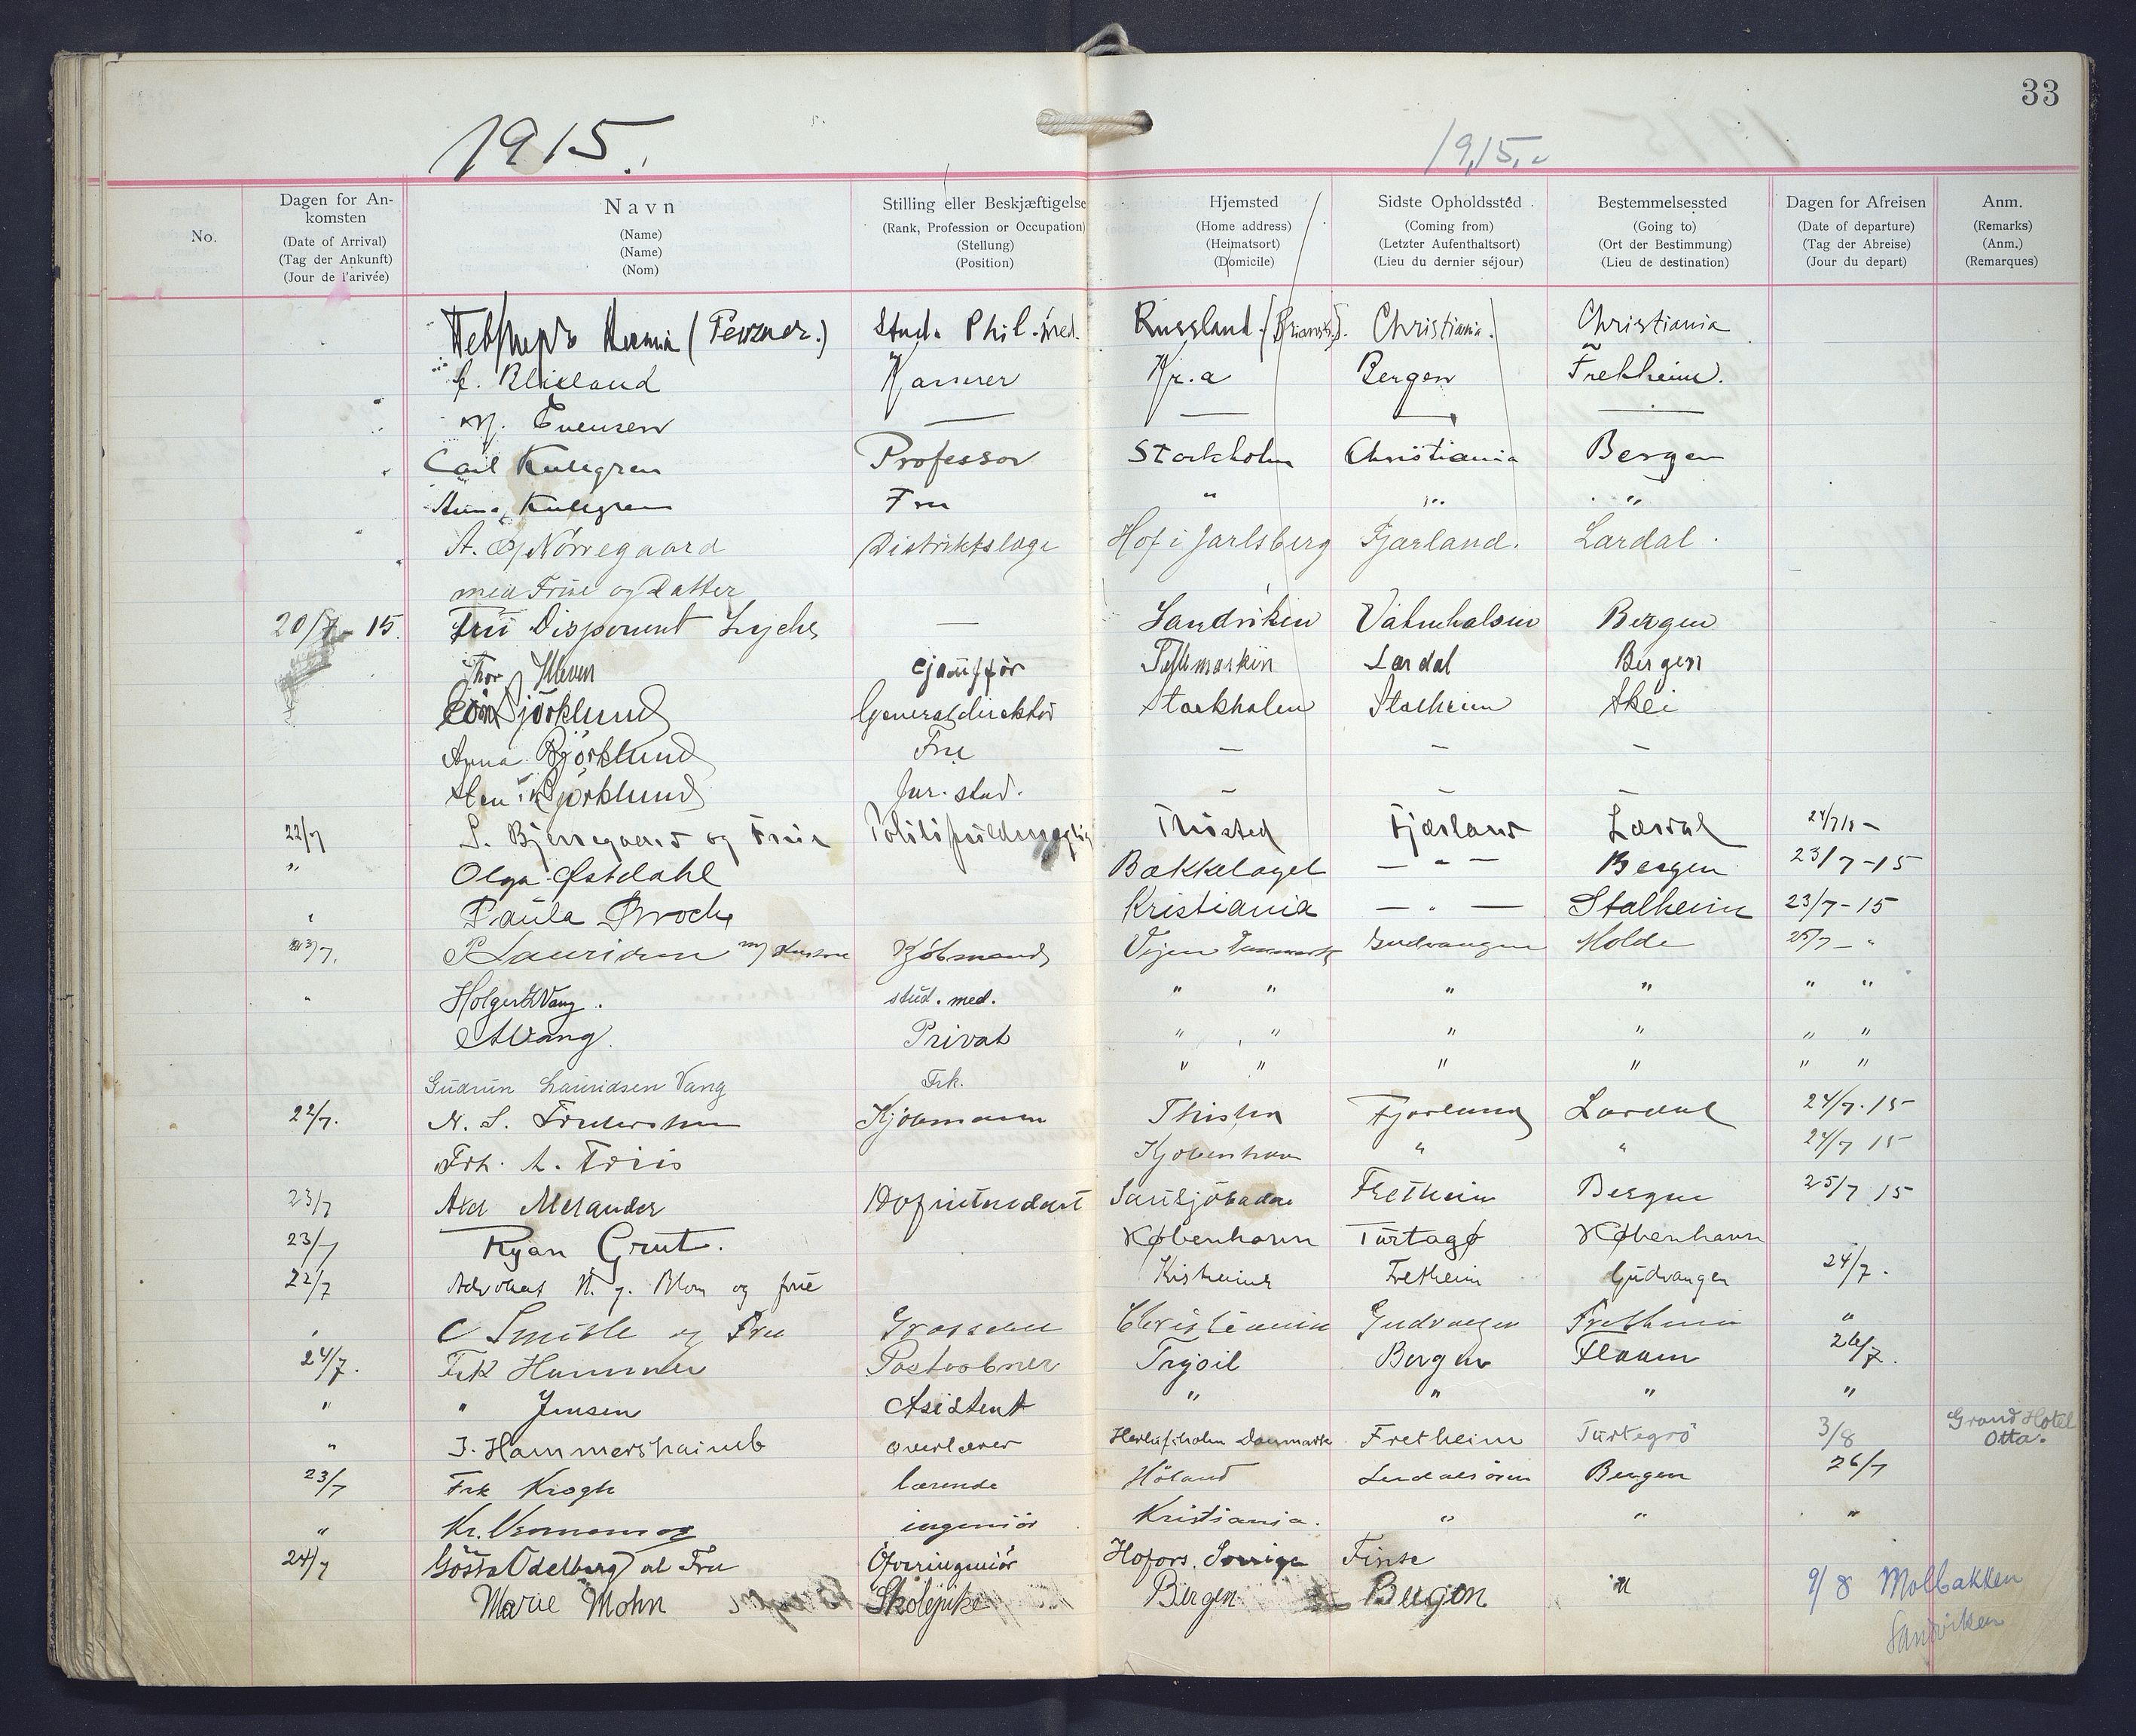 33
1915.
1915.
No.
Dagen for An-
komsten
(Date of Arrival)
(Tag der Ankunft)
(Jour de l'arivée)
Navn
(Name)
(Name)
(Nom)
Stilling eller Beskjæftigelse
(Rank, Profession or Occupation)
(Stellung)
(Position)
Hjemsted
(Home address)
(Heimatsort)
(Domicile)
Sidste Opholdssted
(Coming from)
(Letzter Aufenthaltsort)
(Lieu du dernier séjour)
Bestemmelsessted
(Going to)
(Ort der Bestimmung)
(Lieu de destination)
Dagen for Afreisen
(Date of departure)
(Tag der Abreise)
(Jour du depart)
Anm.
(Remarks)
(Anm.)
(Remarques)
Stud. Phil. Russland. Christiania. Christiania
Kr.a Bergen Fretheim.
M. Evensen — — — —
Carl Kullgren Professor Stockholm Christiania Bergen
Anna Kullgren Fru " " "
A. Nørregaard Distriktslæge Hof i Jarlsberg Fjærland. Lærdal.
med Frue og Datter
20/7-15. Fru Disponent — Sandviken Vatnehalsen Bergen
Thor Lærdal Bergen
Björklund Generaldirektör Stockholm Stalheim Skei
Anna Björklund Fru — — —
Sten Björklund Jur. stud. — — —
22/7 og Frue Thisted Fjærland Lærdal 24/7 15-
" Olga Østdahl Bækkelaget — " — Bergen 23/7-15
" Paula Broch Kristiania — " — Stalheim 23/7-15
23/7. Kjöbmand Vejen Danmark Gudvangen Molde 25/7 - "
" Holger Vang. stud. med. " " " " " "
Vang. Privat " " " " " "
Gudrun Lauridsen Vang Frk. " " " " " "
22/7. N. S. Kjöbmann Fjærland Lærdal 24/7.15
Frk. A. Friis Kjøbenhavn " " 24/7 15
23/7 Axel Melander Hofintendent Saltsjöbaden Fretheim Bergen 25/7 15
23/7 Ryan Grut. København Turtagø København
22/7 Advokat og frue Fretheim Gudvangen 24/7.
" og Fru Christiania Gudvangen Fretheim "
24/7. Frk Hammer Postaabner Trysil Bergen Flaam 26/7.
" " Jensen Asistent " " " "
" J. Hammershaimb overlærer Herlufsholm Danmark Fretheim Turtegrö 3/8 Grand Hotel
Otta.
23/7 Frk Krogh Höland Bergen 26/7
" Kr. ingeniör Kristiania. " " "
24/7 Gösta Odelberg o Fru Överingeniör Hofors. Sverige Finse
Marie Mohn Skolepike Bergen Bergen 9/8 Molbakken
Sandviken